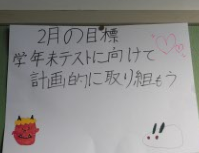 2月の目標
学年末テストに向けて
計画的に取り組もう